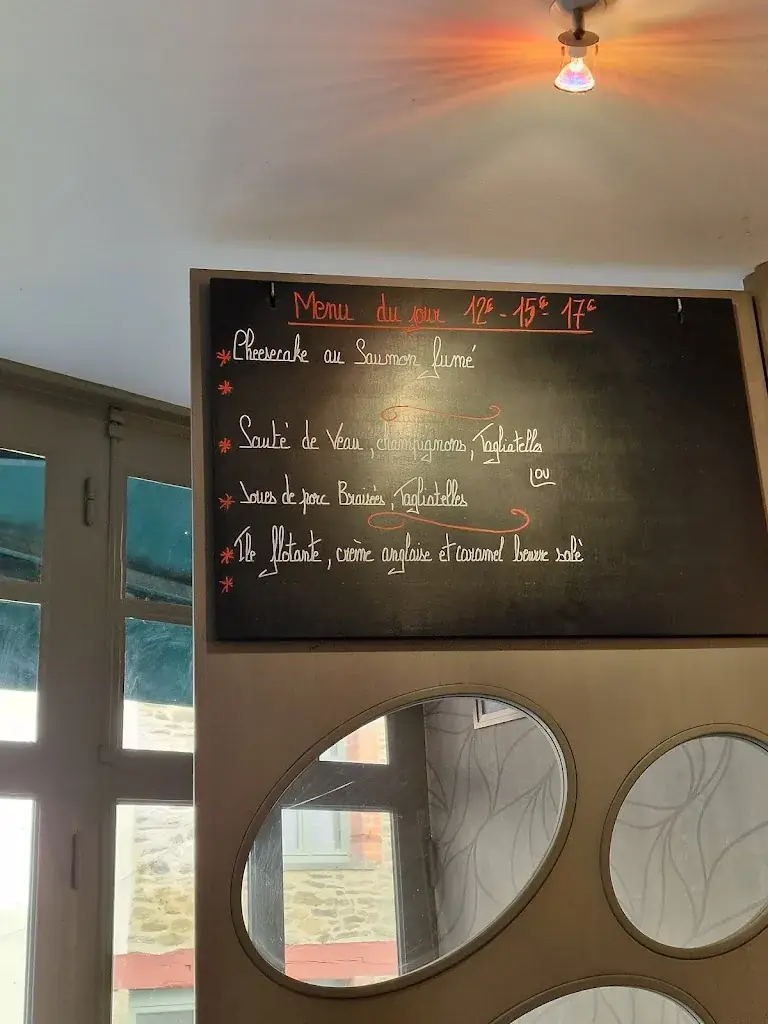 Menu du jour 12€ - 15€ - 17€
* Cheesecake au Saumon fumé
*
* Sauté de Veau, champignons, Tagliatelles
ou
* Joues de porc Braisées, Tagliatelles
* Ile flotante, crème anglaise et caramel beurre salé
*